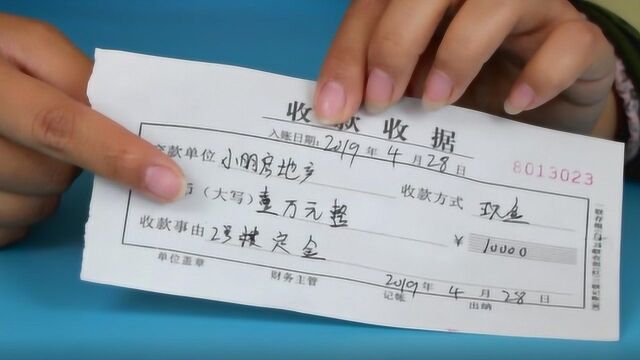 收款收据
入账日期: 2019 年 4 月 28 日
8013023
交款单位 小朋房地产 收款方式 现金
币 (大写) 壹万元整 ¥ 10000
收款事由 2号楼定金
2019 年 4 月 28 日
单位盖章 财务主管 记账 出纳